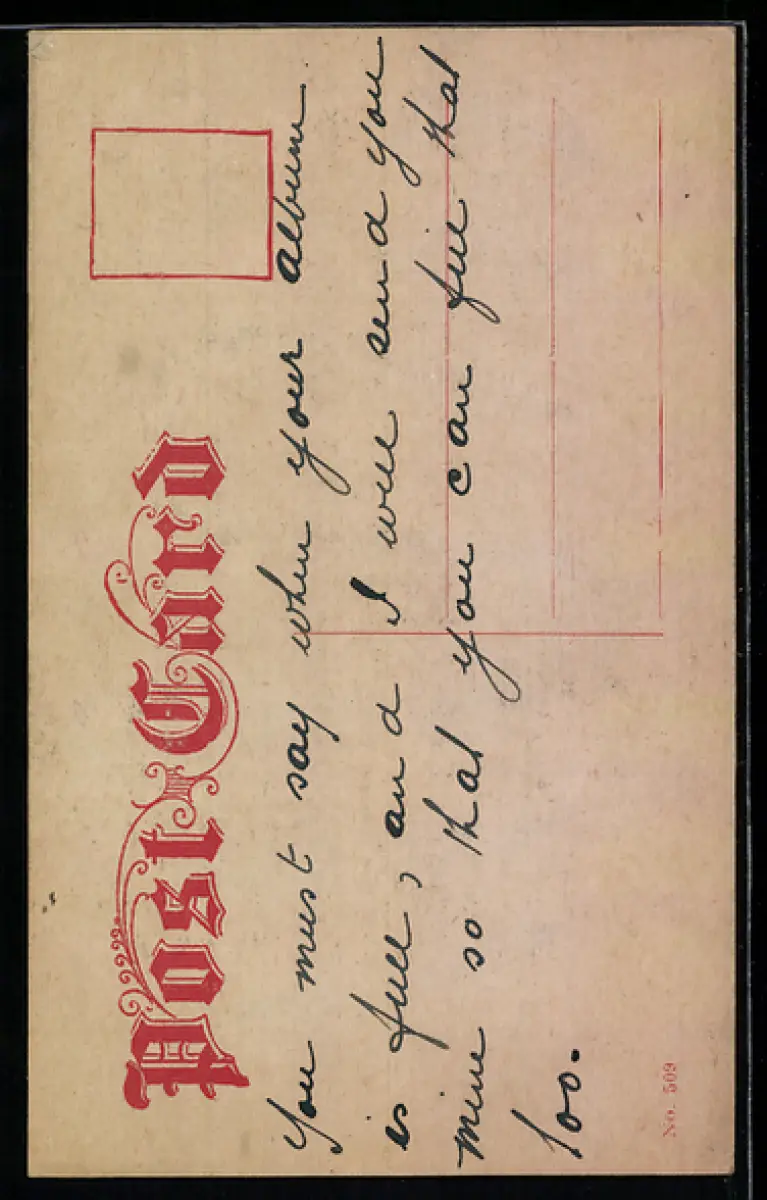 Post Card
You must say when your album
is full, and I will send you
mine so that you can fill that
too.
No. 509